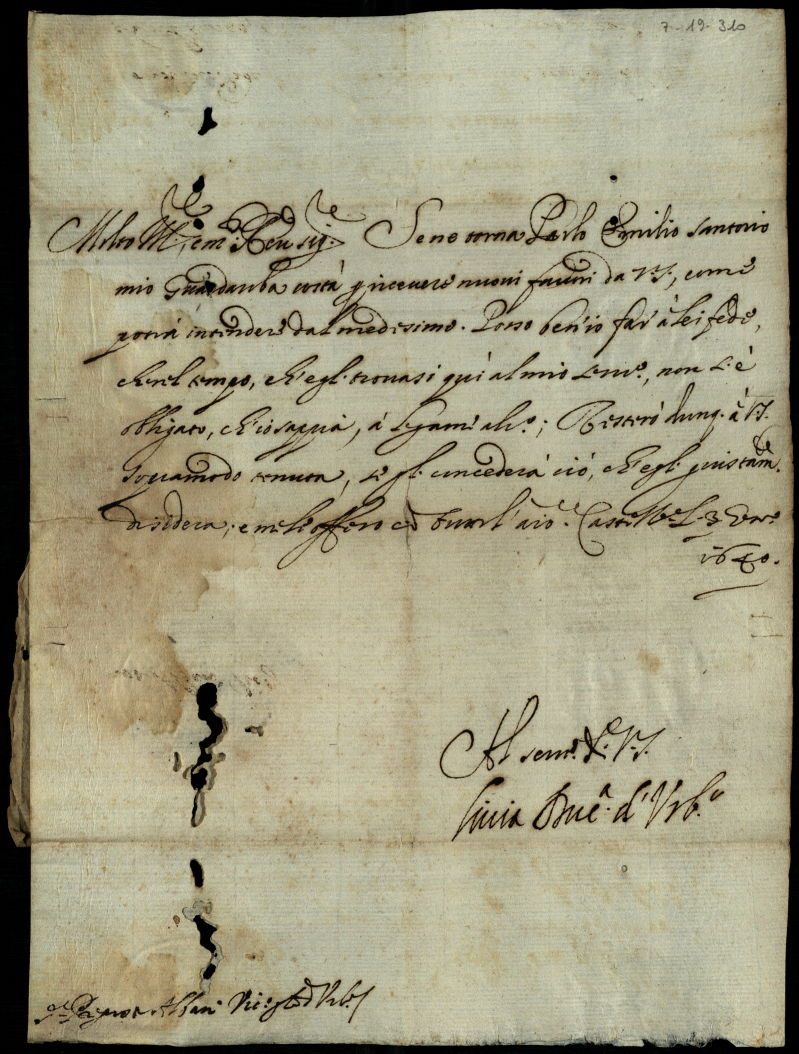 7-19-310
Molto Ill.re e m.to Reu. sig.re Se ne torna Paolo Emilio Santorio
mio Guardaroba costà p riceuere nuoui fauori da V.S., come
potrà intendere dal medesimo. Posso ben io far à lei fede,
che nel tempo, ch'egl. trouasi quì al mio ser.o, non s.è
obligato, ch'io sappia, à legame alc.o; Resterò dunq. à V.S.
tenuta, se gl. concederà ciò, ch'egl. giustam.te
desidera; e me le offero ed
1640.
Al seru.o di V.S.
Liuia Duc.a d'Urb.o
Albani Vic.o d'Urb.o